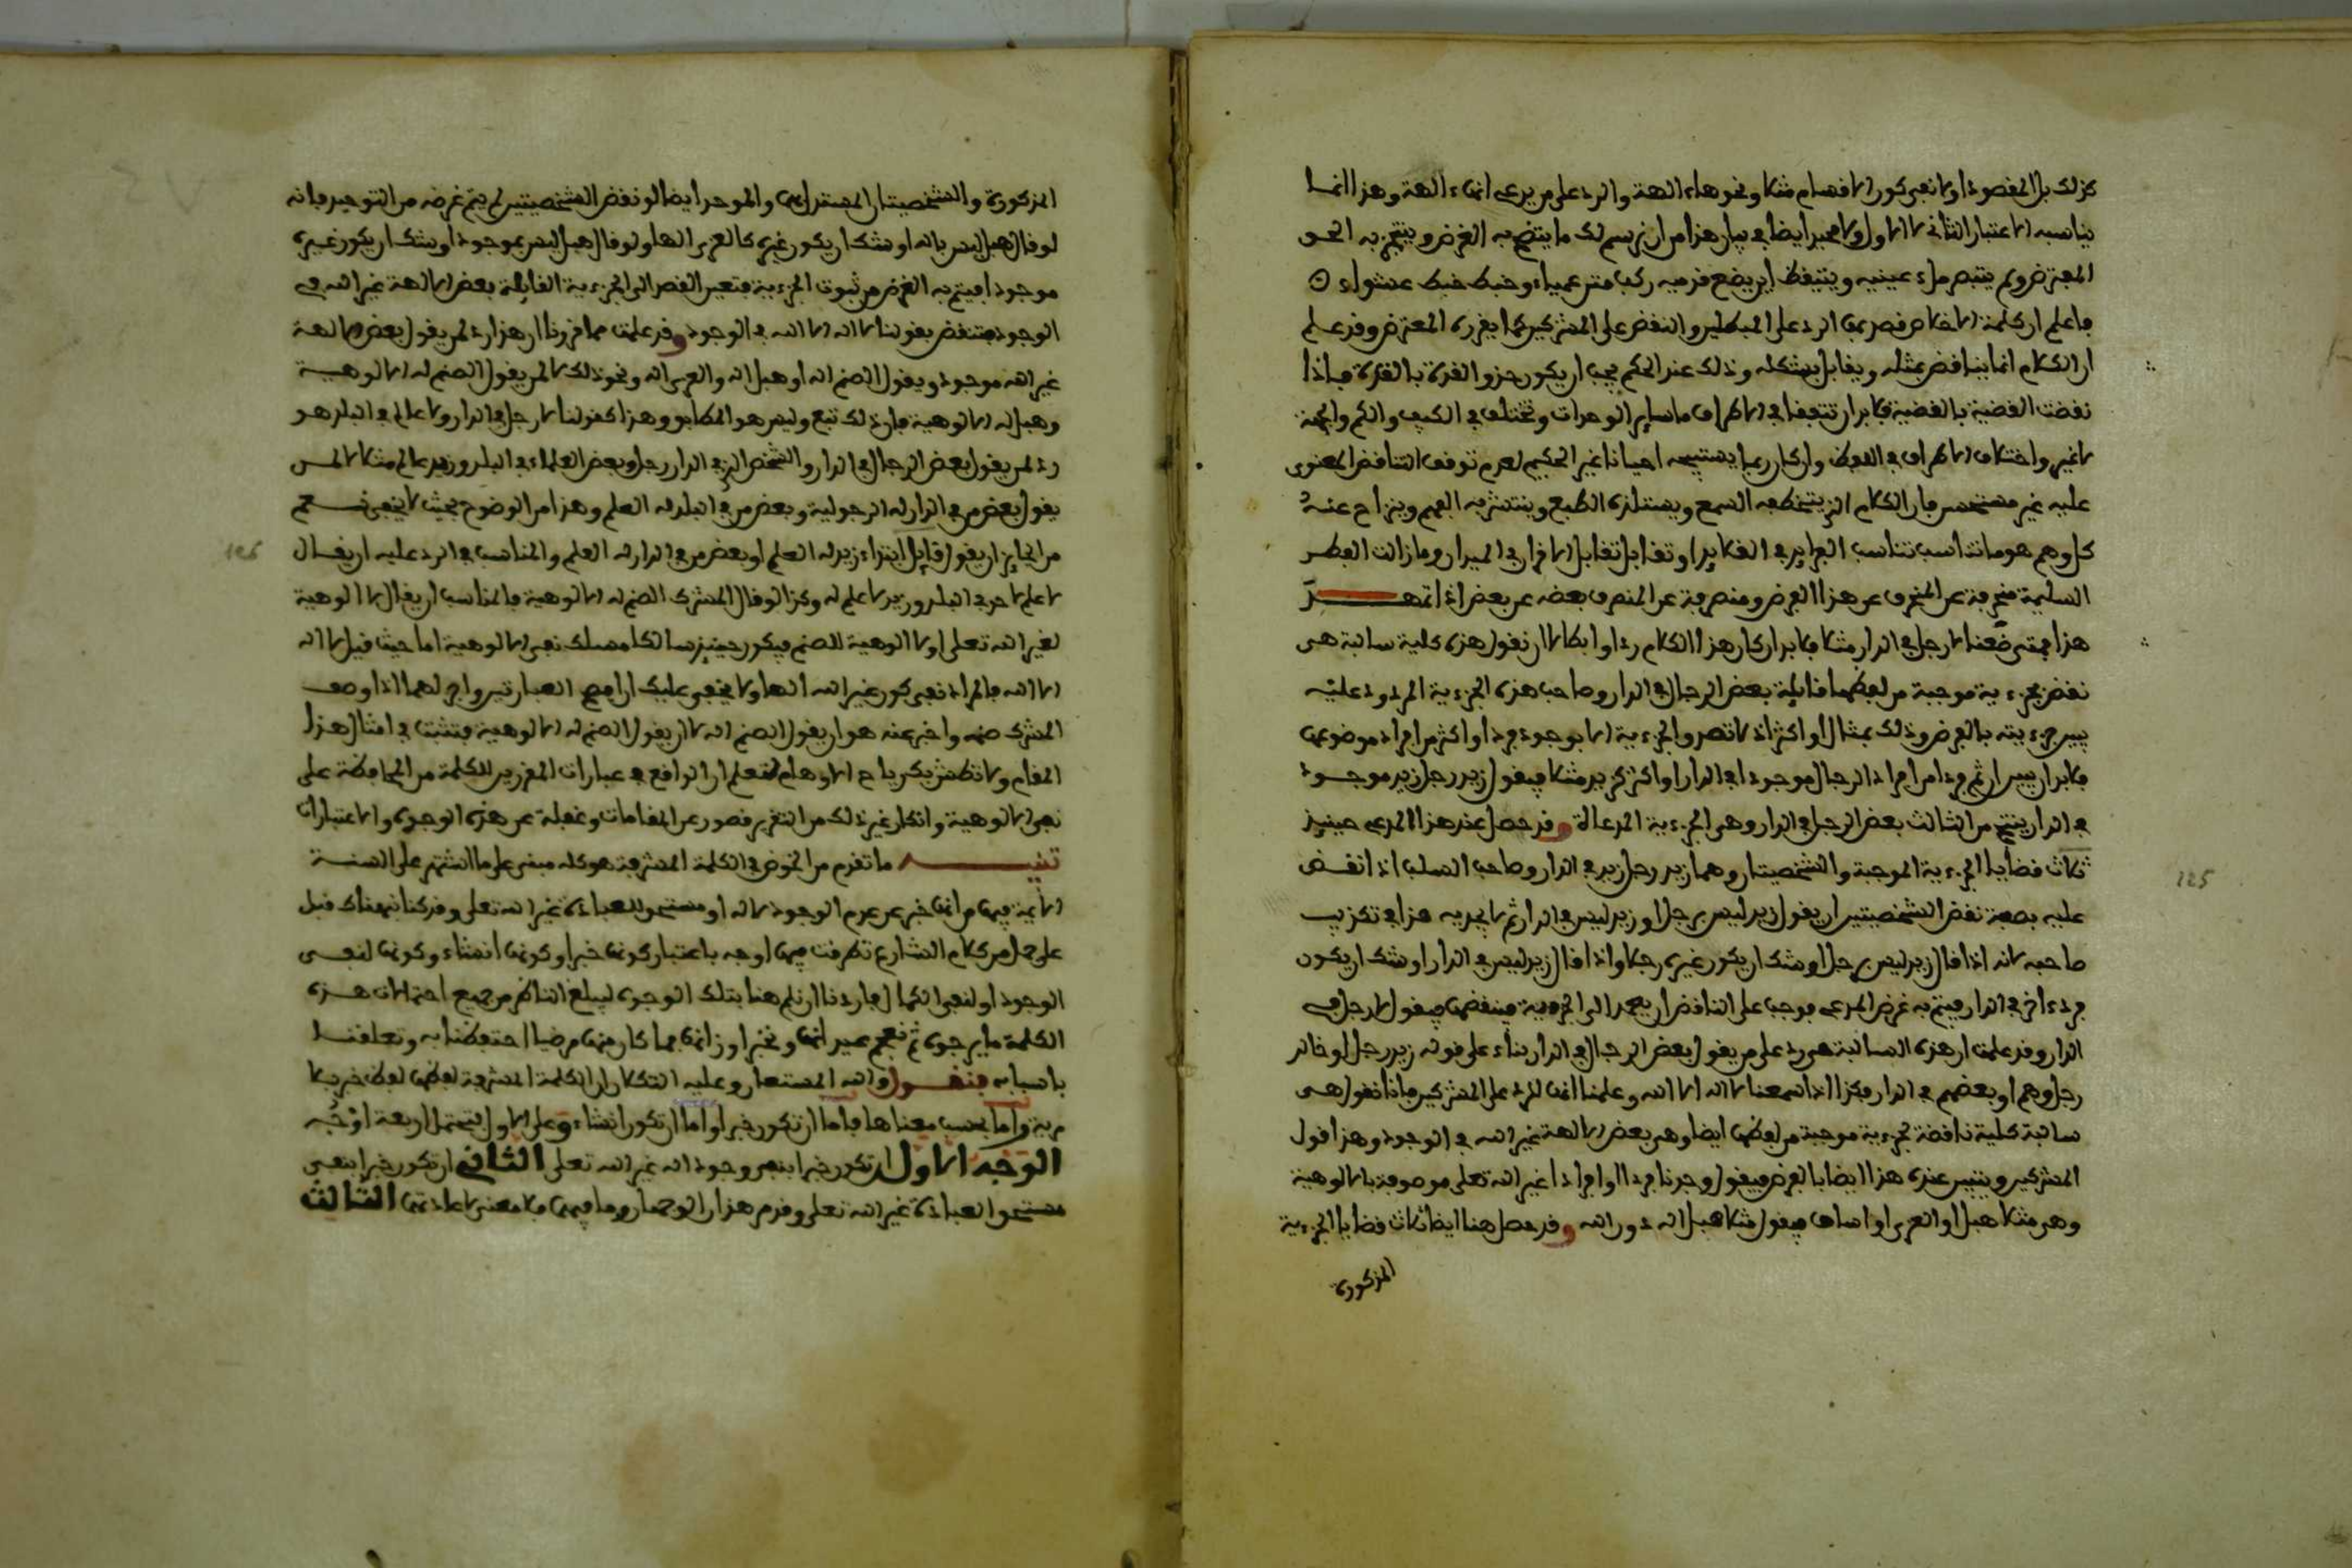 كذلك بل المقصود اولا نفي كون الاقسام مثلا ونحوها ءالهة والرد على من يدعي انها ءالهة وهذا انما
يناسبه الاعتبار الثاني لا الاول ولا محيد ايضا في بيان هذا من ان نرسم لك ما يتضح به الغرض وينتج به الحق
المعترض ولم يتبصر ملء عينيه ويتيقظ اين يضع قدميه ركب متن عمياء وخبط خبط عشواء
فاعلم ان كلمة الاخلاص قصد بها الرد على المبطلين والنقض على المشركين كما يقرره المعترض وقد علم
ان الكلام انما يناقض بمثله ويقابل بشكله وذلك عند الحكيم يجب ان يكون حذو القذة بالقذة فاذا
نقضت القضية بالقضية فلا بد ان تتفقا في الاطراف ما سائر الوحدات وتختلف في الكيف والكم والجهة
لا غير واختلاف الاطراف في اللفظ وان كان ربما يستبيحه احيانا غير الحكيم لعدم توقف التناقض المعنوي
عليه غير مستحسن فان الكلام الذي يتخطفه السمع ويستلذه الطبع وينتشر به الفهم وينزاح عنه
كل وهم هو ما تناسب تناسب الفرايد في القلايد او تقابل تقابل الاقران في الميدان وما زالت الفطر
السليمة منحرفة عن المنحرف عن هذا الغرض ومنصرفة عن المنصرف بعضه عن بعض اذا تمهد
هذا فمتى ضعنا لا رجل في الدار مثلا فلا بد ان كان هذا الكلام ردا وابطالا ان نقول هذه كلية سالبة هي
نقض لجزءية موجبة من لفظها قايلة بعض الرجال في الدار وصاحب هذه الجزءية المردود عليه
يبين جزءيته بالفرض وذلك بمثال او اكثر اذ لا تصدق الجزءية الا بوجود فرد او اكثر من افراد موضوعها
فلا بد ان يبين ان ثم فردا من افراد الرجال موجودا في الدار او اكثر كزيد مثلا فيقول زيد رجل زيد موجود
في الدار ينتج من الثالث بعض الرجل في الدار وهي الجزءية المدعاة وقد حصل عند هذا المدعي حينيذ
ثلاث قضايا الجزءية الموجبة والشخصيتان وهما زيد رجل زيد في الدار وصاحب السلب اذا نقض
عليه بصفة نقض الشخصيتين ان يقول زيد ليس برجل او زيد ليس في الدار ثم لا يجديه هذا في تكذيب
صاحبه لانه اذا قال زيد ليس برجل اوشك ان يكون غيره رجلا واذا قال زيد ليس في الدار اوشك ان يكون
فرد ءاخر في الدار فيتم به غرض المدعي فوجب على الناقض ان يعمد الى الجزءية فينقضها فيقول لا رجل في
الدار وقد علمت ان هذه السالبة هي رد على من يقول بعض الرجال في الدار بناء على قوله زيد رجل او خالد
رجل وهم او بعضهم في الدار فكذا اذا سمعنا لا اله الا الله وعلمنا انها للرد على المشركين فانا نقول هي
سالبة كلية ناقضة لجزءية موجبة من لفظها ايضا وهي بعض الالهة غير الله في الوجود وهذا قول
المشركين ويتبين عنده هذا ايضا بالفرض فيقول وجدنا فردا او افرادا غير الله تعلى موصوفة بالالوهية
وهي مثلا هبل او العزى او اساف فيقول مثلا هبل اله دون الله وقد حصل هنا ايضا ثلاث قضايا الجزءية
المذكورة
المذكورة والشخصيتان المستدل بهما والموحد ايضا لو نقض الشخصيتين لم يتم غرضه من التوحيد فانه
لو قال هبل ليس باله اوشك ان يكون غيره كالعزى الها ولو قال هبل ليس بموجود اوشك ان يكون غيره
موجودا فيتم به الغرض من ثبوت الجزءية فتعين القصد الى الجزءية القايلة بعض الالهة غير الله في
الوجود فتنقض بقولنا لا اله الا الله في الوجود وقد علمت مما قررنا ان هذا رد لمن يقول بعض الالهة
غير الله موجود ويقول الصنم اله او هبل اله والعزى اله ونحو ذلك لا لمن يقول الصنم له الالوهية
وهبل له الالوهية فان ذلك تبع وليس هو المطابق وهذا كقولنا لا رجل في الدار ولا عالم في البلد هو
رد لمن يقول بعض الرجال في الدار والشخص الذي في الدار رجل وبعض العلماء في البلد وزيد عالم مثلا لا لمن
يقول بعض من في الدار له الرجولية وبعض من في البلد له العلم وهذا من الوضوح بحيث لا يخفى نعم
من الجايز ان يقول قايل ابتداء زيد له العلم او بعض من في الدار له العلم والمناسب في الرد عليه ان يقال
لا علم لاحد في البلد وزيد لا علم له وكذا لو قال المشرك الصنم له الالوهية فالمناسب ان يقال لا الوهية
لغير الله تعلى او لا الوهية للصنم فيكون حينيذ سالكا مسلك نفي الالوهية اما حيث قيل لا اله
الا الله فالمراد نفي كون غير الله الها ولا يخفى عليك ان افصح العبارتين واجرلهما اذا وصف
المشرك صنمه واخبر عنه هو ان يقول الصنم اله لا ان يقول الصنم له الالوهية فتثبت في امثال هذا
المقام ولا تطش بك رياح الاوهام لتعلم ان الواقع في عبارات المقررين للكلمة من المحافظة على
نفي الالوهية وانكار غير ذلك من التقرير قصور عن المقامات وغفلة عن هذه الوجوه والاعتبارات
تنبيه ما تقدم من الخوض في الكلمة المشرفة هو كله مبني على ما اشتهر على السنة
الايمة فيها من انها خبر عن عدم الوجود لاله او مستحق للعبادة غير الله تعلى وقد كنا نبهناك قبل
على حمل من كلام الشارع تطرقت فيها اوجه باعتبار كونها خبرا وكونها انشاء وكونها لنفي
الوجود او لنفي الكمال فاردنا ان نلم هنا بتلك الوجوه ليبلغ الناظر من جميع احتمالات هذه
الكلمة ما يرجوه ثم نعجم عيدانها ونخبر اوزانها فما كان منها مرضيا احتفظنا به وتعلقنا
باسبابه فنقول والله المستعان وعليه التكلان ان الكلمة المشرفة لفظها لفظ خبر بلا
مرية واما بحسب معناها فاما ان تكون خبرا واما ان تكون انشاء وعلى الاول فتحتمل اربعة اوجه
الوجه الاول ان تكون خبرا بنفي وجود اله غير الله تعلى الثاني ان تكون خبرا بنفي
مستحق العبادة غير الله تعلى وقد مر هذان الوجهان وما فيهما فلا معنى لاعادتها الثالث
125
126